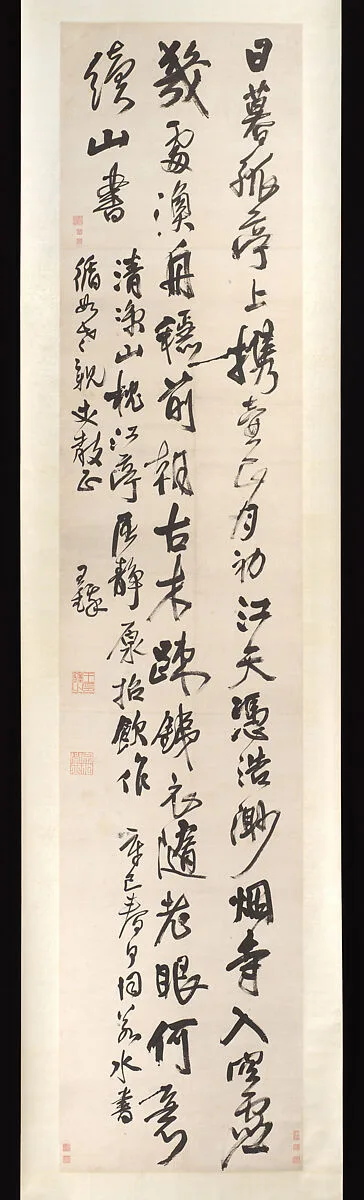 日暮孤亭上携壺正月初江天憑浩渺烟寺入空虛
幾處漁舟穩前朝古木疎銕衣隨老眼何意
續山書
清淨山枕江亭靜原招飲作 辛巳春日同若水書
循如老親丈教正 王鐸